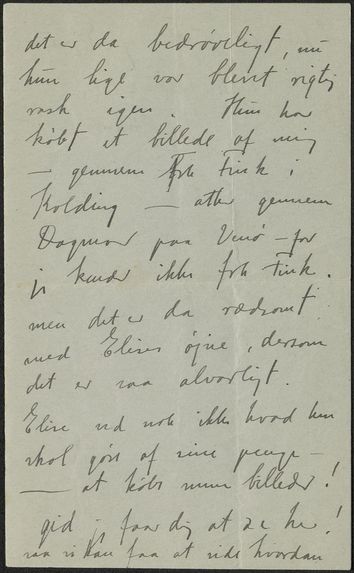 det er da bedrøveligt, nu
hun lige var blevet rigtig
rask igen. Hun har
købt et billede af mig
— gennem frk Fink i
Kolding — atter gennem
Dagmar paa Venø — for
jeg kender ikke frk Fink.
men det er da rædsomt
med Elises øjne, dersom
det er saa alvorligt.
Elise ved nok ikke hvad hun
skal gøre af sine penge —
— at købe mine billeder!
gid jeg faar dig at se her!
saa vi kan faa at vide hvordan